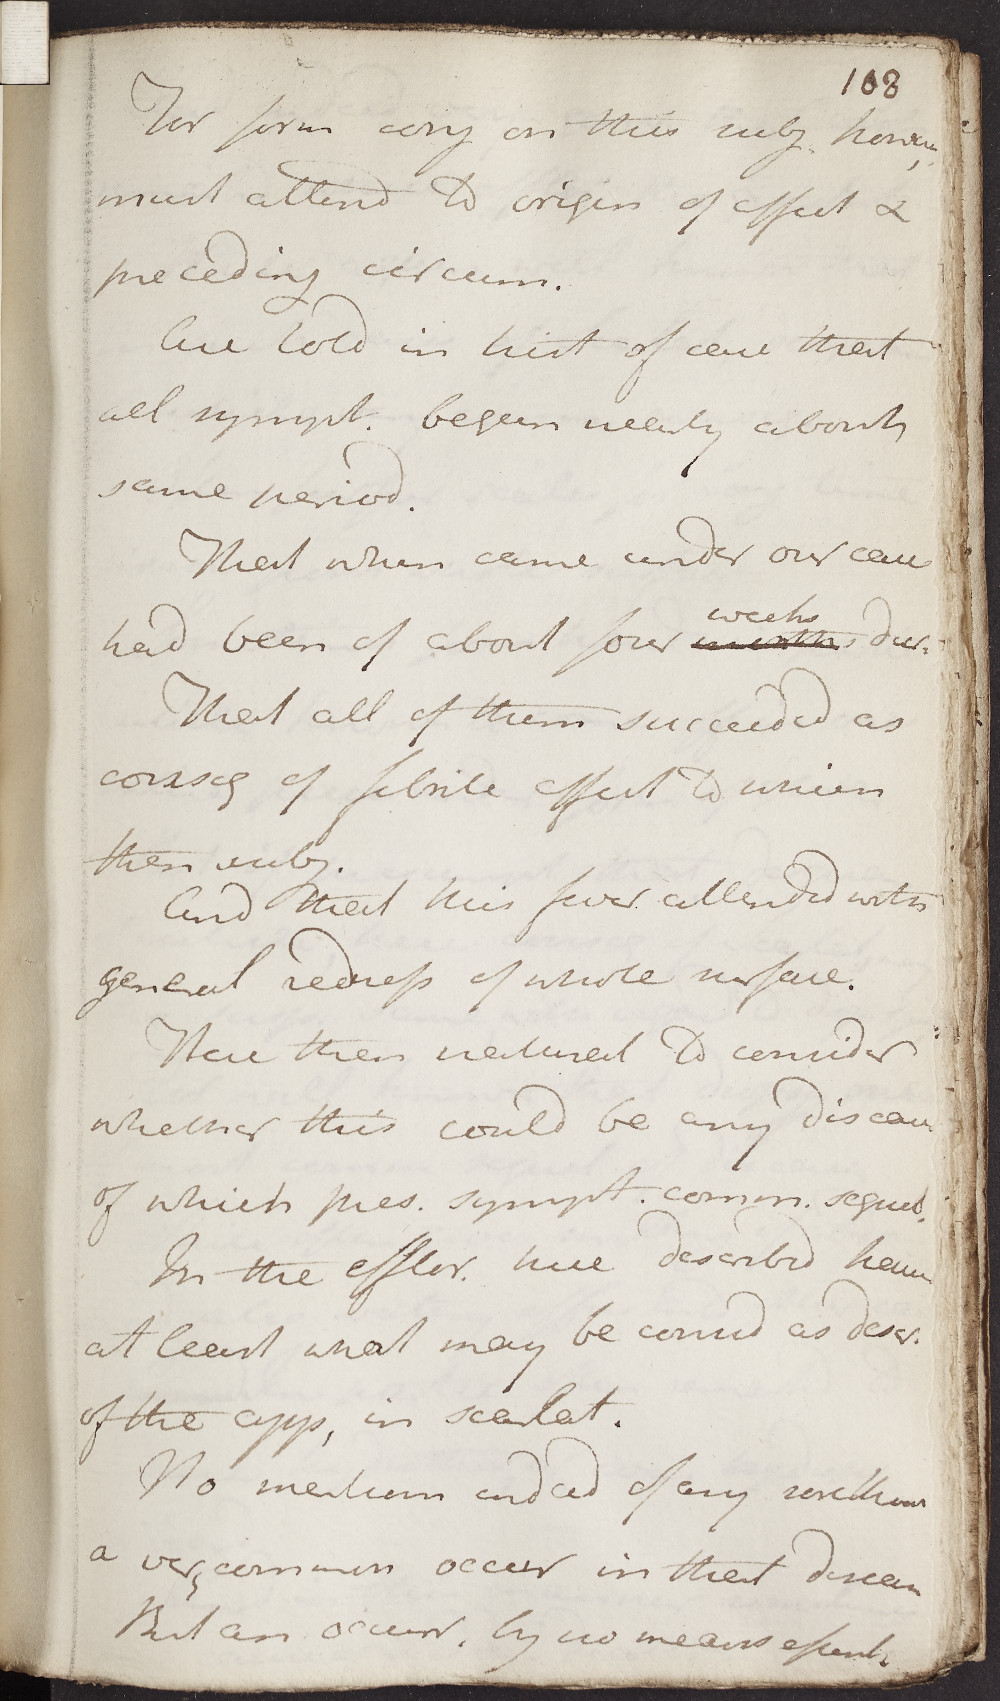 108
For form conj on this subj. howev,
must attend to origin of affect &
preceding circum.
Are told in hist of case that
all sympt. began nearly about
same period.
That when came under our care
had been of about four weeks months dur.
That all of them succeeded as
conseq of febrile affect to which
then subj.
And that this fever attended with
general redness of whole surface.
Have then natural to consider
whether this could be any disease
of which pres. sympt. comm. sequel.
In the efflor. here described have
at least what may be consid as descr.
of the app, in scarlat.
No mention indeed of any sorethroat
a very common occur in that disease
But an occurr. by no means essent.